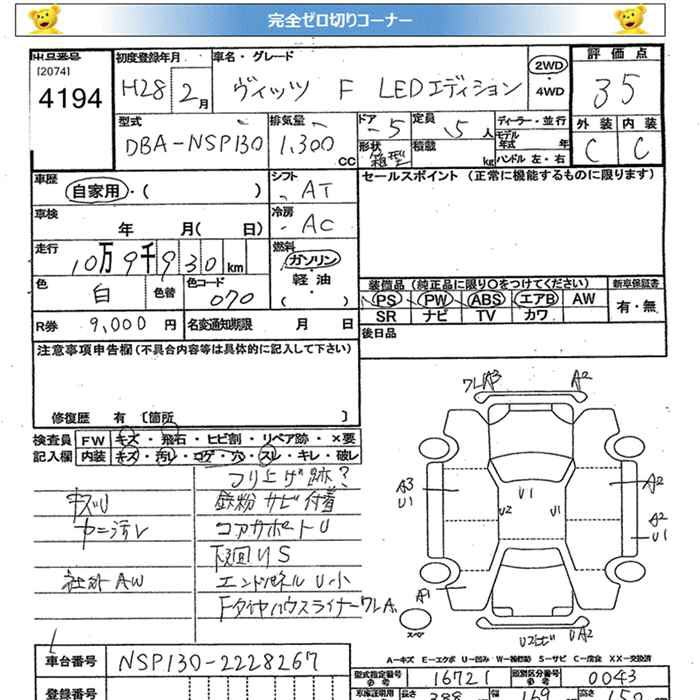 完全ゼロ切りコーナー
出品番号
[2074]
4194
初度登録年月
H28 2月
車名・グレード
ヴィッツ F LEDエディション
2WD
・
4WD
評価点
35
型式
DBA-NSP130
排気量
1,300 CC
ドア
-5
形状
箱型
定員
5人
積載
kg
ディーラー・並行
モデル年式 年
ハンドル 左・右
外装 内装
C C
車歴
自家用・( )
シフト
AT
車検
年 月( 日)
冷房
AC
走行
10万9千930km
燃料
ガソリン
・
軽油
( )
色
白
色替
色コード
070
R券 9,000円
名変通知期限 月 日
セールスポイント(正常に機能するものに限ります)
装備品(純正品に限り○をつけてください)
新車保証書
PS PW ABS エアB AW
SR ナビ TV カワ
有・無
後日品
注意事項申告欄(不具合内容等は具体的に記入して下さい)
修復歴 有 〔箇所 〕
検査員記入欄
FW キズ・飛石・ヒビ割・リペア跡・×要
内装 キズ・汚レ・コゲ・穴・スレ・キレ・破レ
ツリ上げ跡?
キズU
鉄粉サビ付着
ヤニ汚レ
コアサポートU
下回りS
社外AW
エンドパネルU小
FタイヤハウスライナーワレA
ワレA3 A2
A3
U1
U1
U2
U1
A2
A2
U1
A1
スペア
UA2
車台番号
NSP130-2228267
登録番号
A-キズ E-エクボ U-凹み W-補修跡 S-サビ C-腐食 XX-交換済
型式指定番号
16721
類別区分番号
0043
長さ
388
幅
169
高さ
150